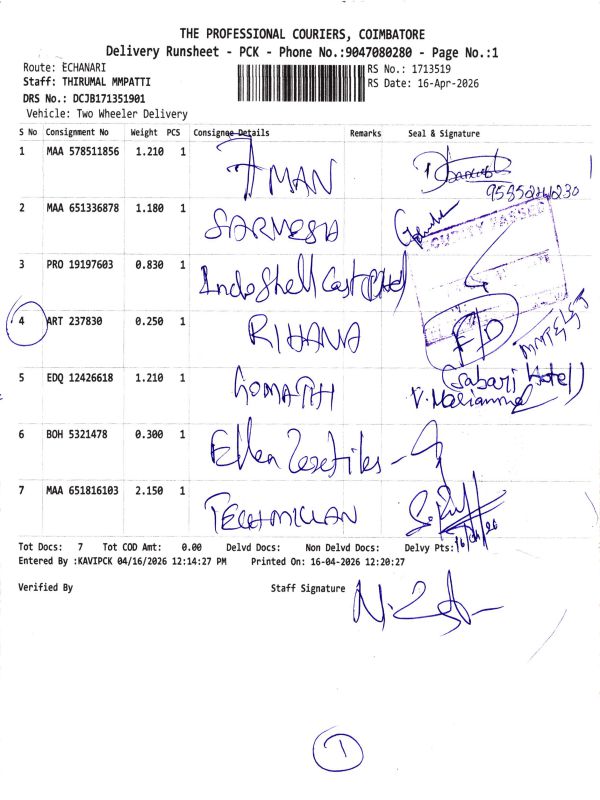 THE PROFESSIONAL COURIERS, COIMBATORE
Delivery Runsheet - PCK - Phone No.:9047080280 - Page No.:1
Route: ECHANARI
RS No.: 1713519
Staff: THIRUMAL MMPATTI
RS Date: 16-Apr-2026
DRS No.: DCJB171351901
Vehicle: Two Wheeler Delivery
S No Consignment No Weight PCS Consignee Details Remarks Seal & Signature
1 MAA 578511856 1.210 1 AMAN
2 MAA 651336878 1.180 1 SARVESH
3 PRO 19197603 0.830 1 Indo Shell Cast
4 ART 237830 0.250 1 RIHANA F/D
5 EDQ 12426618 1.210 1 GOMATHI Sabari Hotel
6 BOH 5321478 0.300 1 Ellen
7 MAA 651816103 2.150 1
Tot Docs: 7 Tot COD Amt: 0.00 Delvd Docs: Non Delvd Docs: Delvy Pts:
Entered By :KAVIPCK 04/16/2026 12:14:27 PM Printed On: 16-04-2026 12:20:27
Verified By Staff Signature
1